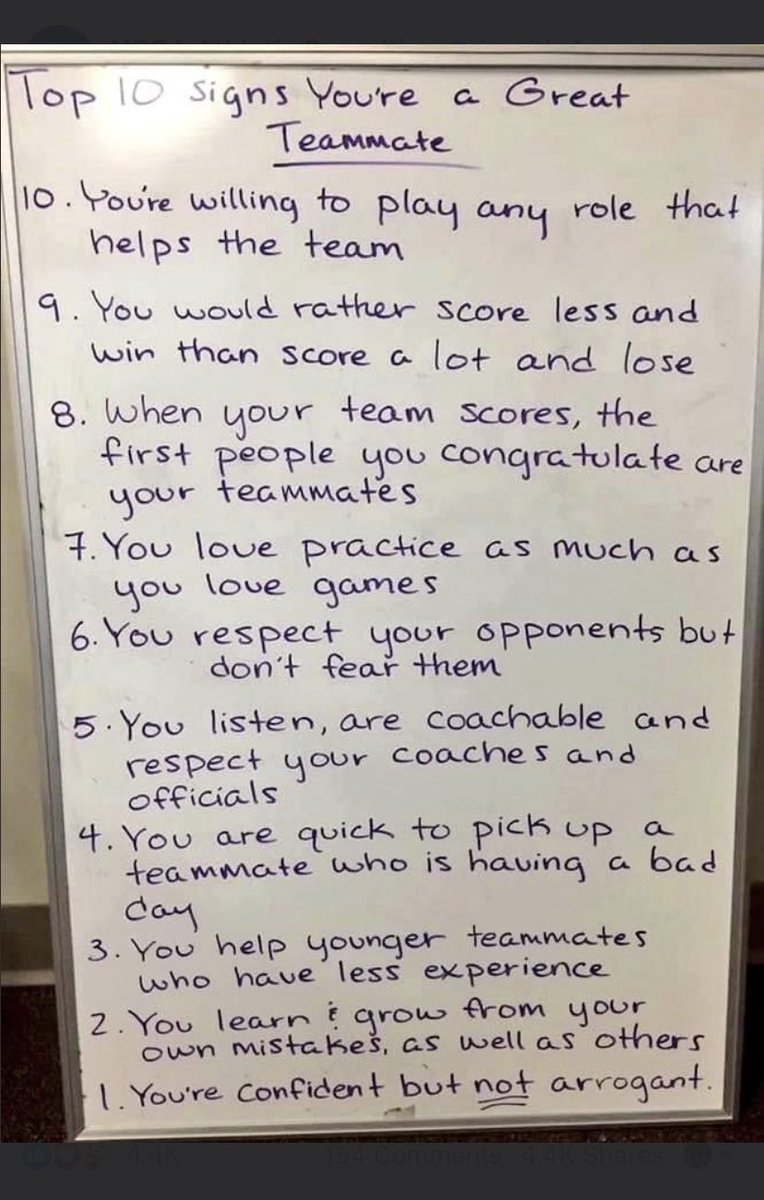 Top 10 Signs You're a Great
Teammate
10. You're willing to play any role that
helps the team
9. You would rather score less and
win than score a lot and lose
8. When your team scores, the
first people you congratulate are
your teammates
7. You love practice as much as
you love games
6. You respect your opponents but
don't fear them
5. You listen, are coachable and
respect your coaches and
officials
4. You are quick to pick up a
teammate who is having a bad
day
3. You help younger teammates
who have less experience
2. You learn & grow from your
own mistakes, as well as others
1. You're confident but not arrogant.
4.4K 164 Comments 4.4K Shares